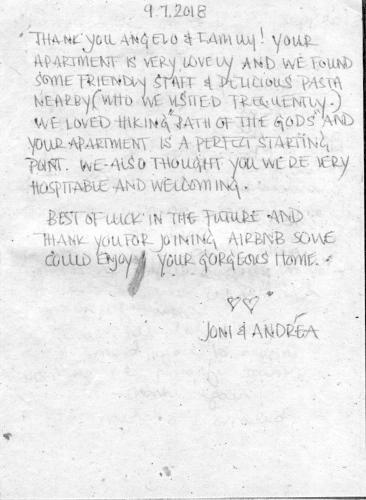 9.7.2018
THANK YOU ANGELO & FAMILY! YOUR
APARTMENT IS VERY LOVELY AND WE FOUND
SOME FRIENDLY STAFF & DELICIOUS PASTA
NEARBY (WHO WE VISITED FREQUENTLY.)
WE LOVED HIKING "PATH OF THE GODS" AND
YOUR APARTMENT IS A PERFECT STARTING
POINT. WE ALSO THOUGHT YOU WERE VERY
HOSPITABLE AND WELCOMING.
BEST OF LUCK IN THE FUTURE AND
THANK YOU FOR JOINING AIRBNB SO WE
COULD ENJOY YOUR GORGEOUS HOME.
♡♡
JONI & ANDRÉA